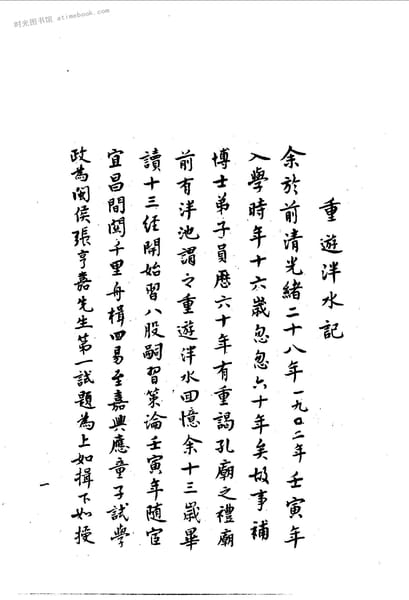 时光图书馆 etimebook.com
重遊泮水記
余於前清光緒二十八年一九〇二年壬寅年
入學時年十六歲忽忽六十年矣故事補
博士弟子員歷六十年有重謁孔廟之禮廟
前有泮池謂之重遊泮水回憶余十三歲畢
讀十三經開始習八股嗣習策論壬寅年隨宦
宜昌間関千里舟楫四易至嘉興應童子試學
政為閩侯張亨嘉先生第一試題為上如揖下如授
一